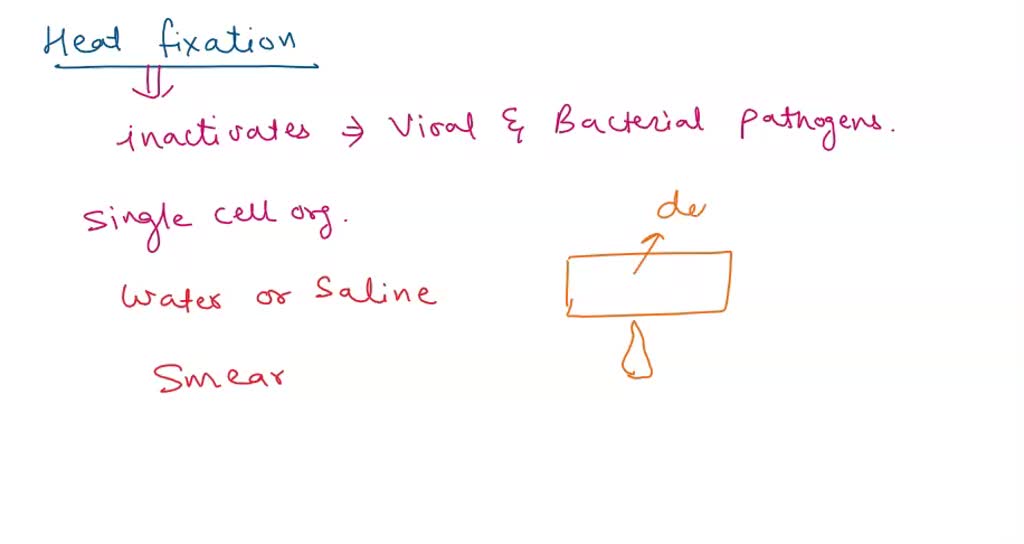 Heat fixation
inactivates ⇒ Viral & Bacterial pathogens.
Single cell org.
de
Water or Saline
Smear